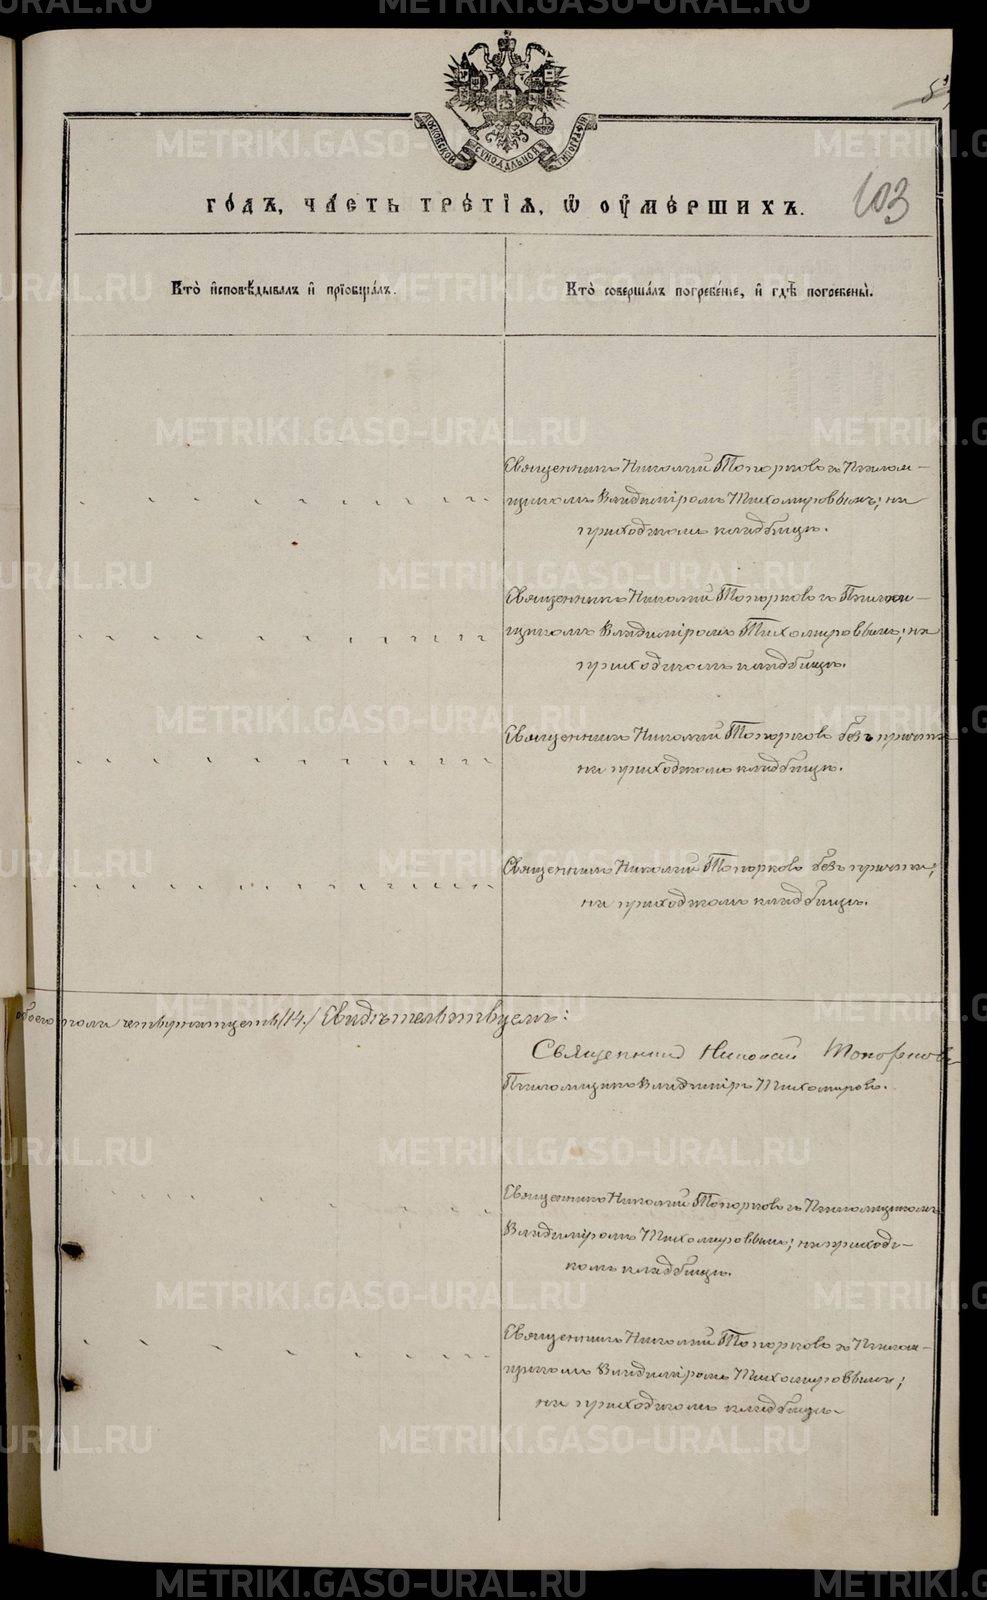 МОСКОВСКОЙ СѴНОДАЛЬНОЙ ТИПОГРАФІИ
103
го́дъ, ча́сть тре́тїѧ, ѡ҆ оу҆ме́ршихъ.
Кто̀ и҆сповѣ́дывалъ и҆ прїобща́лъ.
Кто̀ соверша́лъ погребе́нїе, и҆ гдѣ̀ погребены̀.
Священникъ Николай Топорковъ съ Псалом-
щикомъ Владиміромъ Тихомировымъ; на
приходскомъ кладбищѣ.
Священникъ Николай Топорковъ съ Псалом-
щикомъ Владиміромъ Тихомировымъ; на
приходскомъ кладбищѣ.
Священникъ Николай Топорковъ безъ причта
на приходскомъ кладбищѣ.
Священникъ Николай Топорковъ безъ причта;
на приходскомъ кладбищѣ.
обоего пола четырнадцать /14./ Свидѣтельствуемъ:
Священникъ Николай Топорковъ
Псаломщикъ Владиміръ Тихомировъ.
Священникъ Николай Топорковъ съ Псаломщикомъ
Владиміромъ Тихомировымъ; на приход-
скомъ кладбищѣ.
Священникъ Николай Топорковъ съ Псалом-
щикомъ Владиміромъ Тихомировымъ;
на приходскомъ кладбищѣ.
METRIKI.GASO-URAL.RU